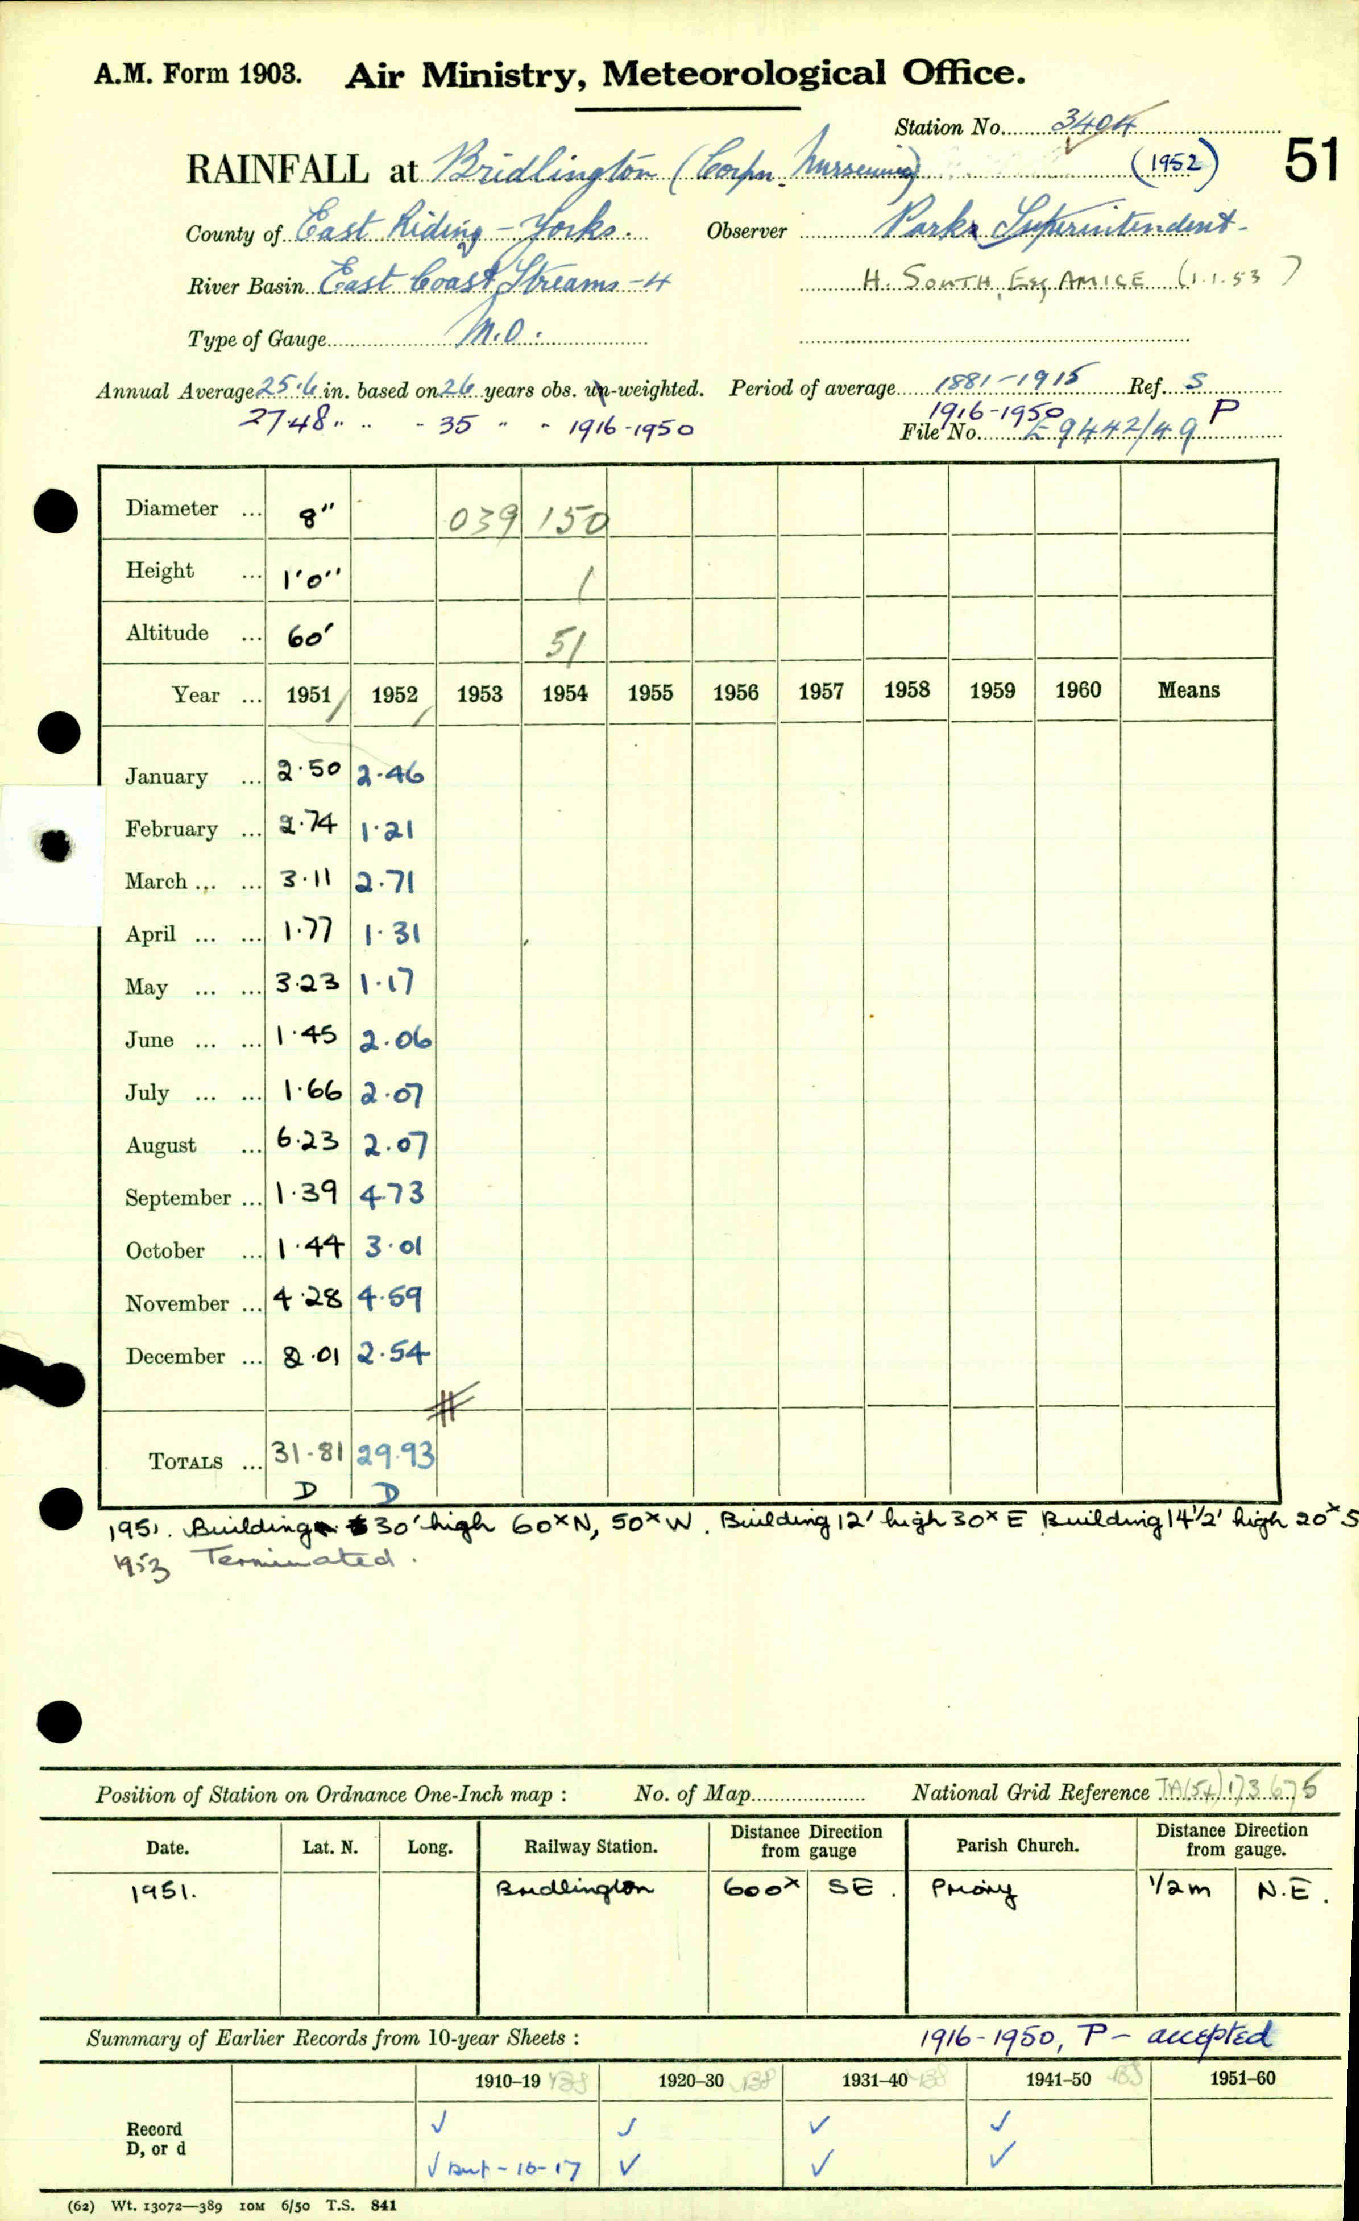 A.M. Form 1903. Air Ministry, Meteorological Office.
Station No. 3404
RAINFALL at Bridlington (Corpn. Nurseries) (1952) 51
County of East Riding - Yorks. Observer Parks Superintendent.
River Basin East Coast Streams - 4 H. SOUTH, Esq AMICE (1.1.53)
Type of Gauge M.O.
Annual Average 25.6 in. based on 26 years obs. un-weighted. Period of average 1881-1915 Ref. S
27.48 " " - 35 " " 1916-1950 1916-1950 P
File No. 9442/49
Diameter ... 8" 039 150
Height ... 1'0" 1
Altitude ... 60' 51
Year ... 1951 1952 1953 1954 1955 1956 1957 1958 1959 1960 Means
January ... 2.50 2.46
February ... 2.74 1.21
March ... ... 3.11 2.71
April ... ... 1.77 1.31
May ... ... 3.23 1.17
June ... ... 1.45 2.06
July ... ... 1.66 2.07
August ... 6.23 2.07
September ... 1.39 4.73
October ... 1.44 3.01
November ... 4.28 4.59
December ... 2.01 2.54
TOTALS ... 31.81 29.93
D D
1951. Building 30' high 60x N, 50x W. Building 12' high 30x E Building 14½' high 20x S
1953 Terminated.
Position of Station on Ordnance One-Inch map : No. of Map National Grid Reference TA(54) 173 675
Date. Lat. N. Long. Railway Station. Distance from Direction gauge Parish Church. Distance from Direction gauge.
1951. Bridlington 600x SE. Priory ½m N.E.
Summary of Earlier Records from 10-year Sheets : 1916-1950, P - accepted
1910–19 1920–30 1931–40 1941–50 1951–60
Record ✓ ✓ ✓ ✓
D, or d ✓ but - 16-17 ✓ ✓ ✓
(62) Wt. 13072—389 10M 6/50 T.S. 841